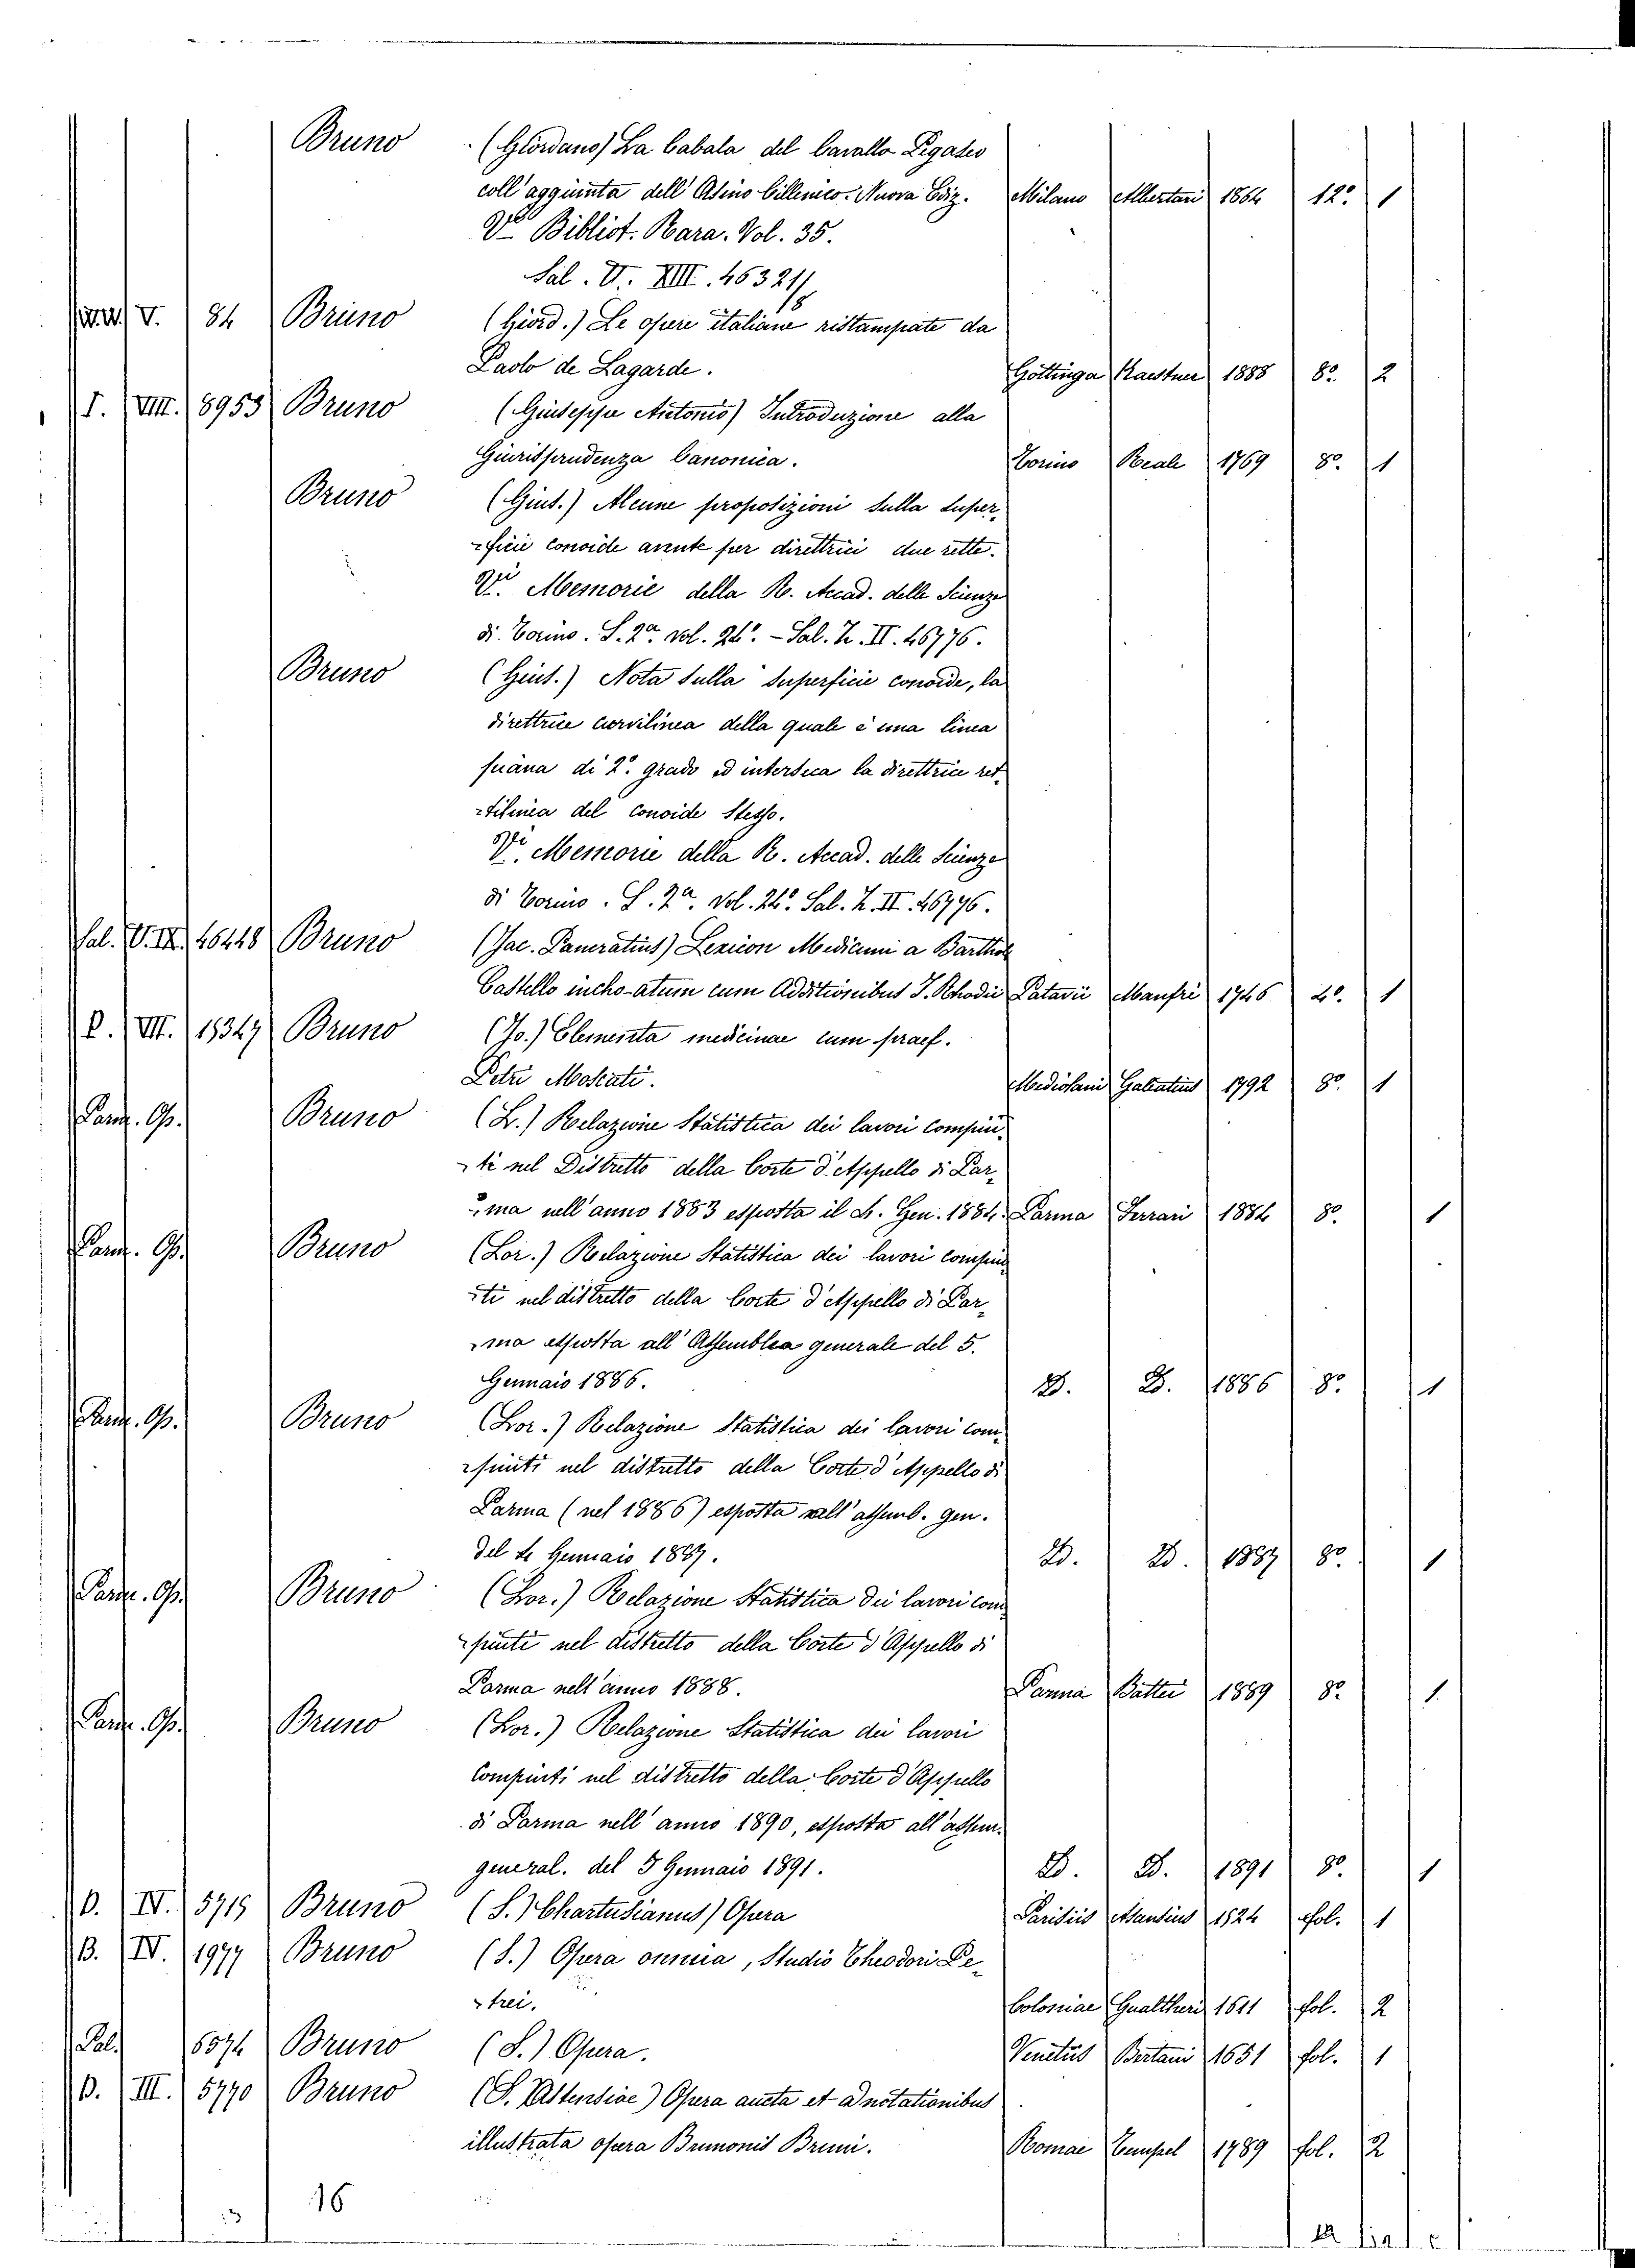 Bruno (Giordano) La Cabala del Cavallo Pegaseo
coll'aggiunta dell'Asino Cillenico. Nuova Ediz. Milano Albertari 1864 12º 1
Vi Bibliot. Rara. Vol. 35.
Sal. V. XIII. 46321/
V. 84 Bruno (Giord.) Le opere italiane ristampate da
Paolo de Lagarde. Göttinga Kaestner 1888 8º 2
I. VIII. 8953 Bruno (Giuseppe Antonio) Introduzione alla
Giurisprudenza Canonica. Torino Reale 1769 8º 1
Bruno (Gius.) Alcune proposizioni sulla super-
-ficie conoide avente per direttrici due rette.
Vi. Memorie della R. Accad. delle Scienze
di Torino. S. 2a. vol. 24º. - Sal. Z. II. 46776.
Bruno (Gius.) Nota sulla superficie conoide, la
direttrice curvilinea della quale è una linea
piana di 2º. grado ed interseca la direttrice ret-
-tilinea del conoide stesso.
Vi. Memorie della R. Accad. delle Scienze
di Torino. S. 2a. Vol. 24º. Sal. Z. II. 46776.
Sal. V. IX. 46448 Bruno (Jac. Pancratius) Lexicon Medicum a Barthol
Castello inchoatum cum Additionibus J. Rhodii Patavii Manfré 1746 4º. 1
P. VII. 15347 Bruno (Jo.) Elementa medicinae cum praef.
Petri Moscati. Mediolani Galeatius 1792 8º 1
Parm. Op. Bruno (L.) Relazione Statistica dei lavori compiu-
-ti nel Distretto della Corte d'Appello di Par-
-ma nell'anno 1883 esposta il 4. Gen. 1884. Parma Ferrari 1884 8º. 1
Parm. Op. Bruno (Lor.) Relazione Statistica dei lavori compiu-
-ti nel distretto della Corte d'Appello di Par-
-ma esposta all'Assemblea generale del 5.
Gennaio 1886. D. D. 1886 8º. 1
Parm. Op. Bruno (Lor.) Relazione Statistica dei lavori com-
-piuti nel distretto della Corte d'Appello di
Parma (nel 1886) esposta nell'assemb. gen.
del 4 Gennaio 1887. D. D. 1887 8º 1
Parm. Op. Bruno (Lor.) Relazione Statistica dei lavori com-
-piuti nel distretto della Corte d'Appello di
Parma nell'anno 1888. Parma Battei 1889 8º 1.
Parm. Op. Bruno (Lor.) Relazione Statistica dei lavori
compiuti nel distretto della Corte d'Appello
di Parma nell'anno 1890, esposta all'assem.
general. del 5 Gennaio 1891. D. D. 1891 8º. 1
D. IV. 5715 Bruno (S.) Chartusianus) Opera Parisiis Asensius 1524 fol. 1
B. IV. 1977 Bruno (S.) Opera omnia, Studio Theodori Pe-
-trei. Coloniae Gualtheri 1611 fol. 2
Pal. 6574 Bruno (S.) Opera. Venetiis Bertani 1651 fol. 1
D. III. 5770 Bruno (S. Astensiae) Opera aucta et adnotationibus
illustrata opera Brunonis Bruni. Romae Tempel 1789 fol. 2
16